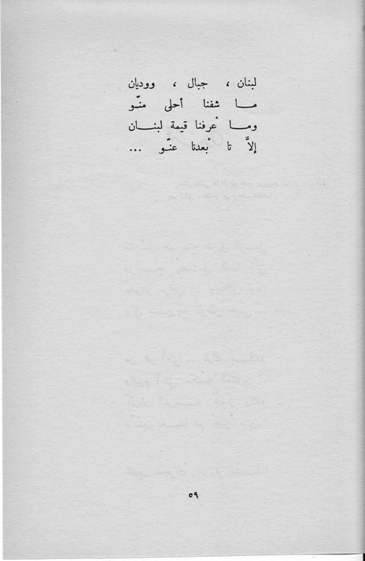 لبنان ، جبال ، ووديان
ما شفنا أحلى منّو
وما عْرفنا قيمة لبنــان
إلاَّ تا بْعدنا عنّو ...
٥٩